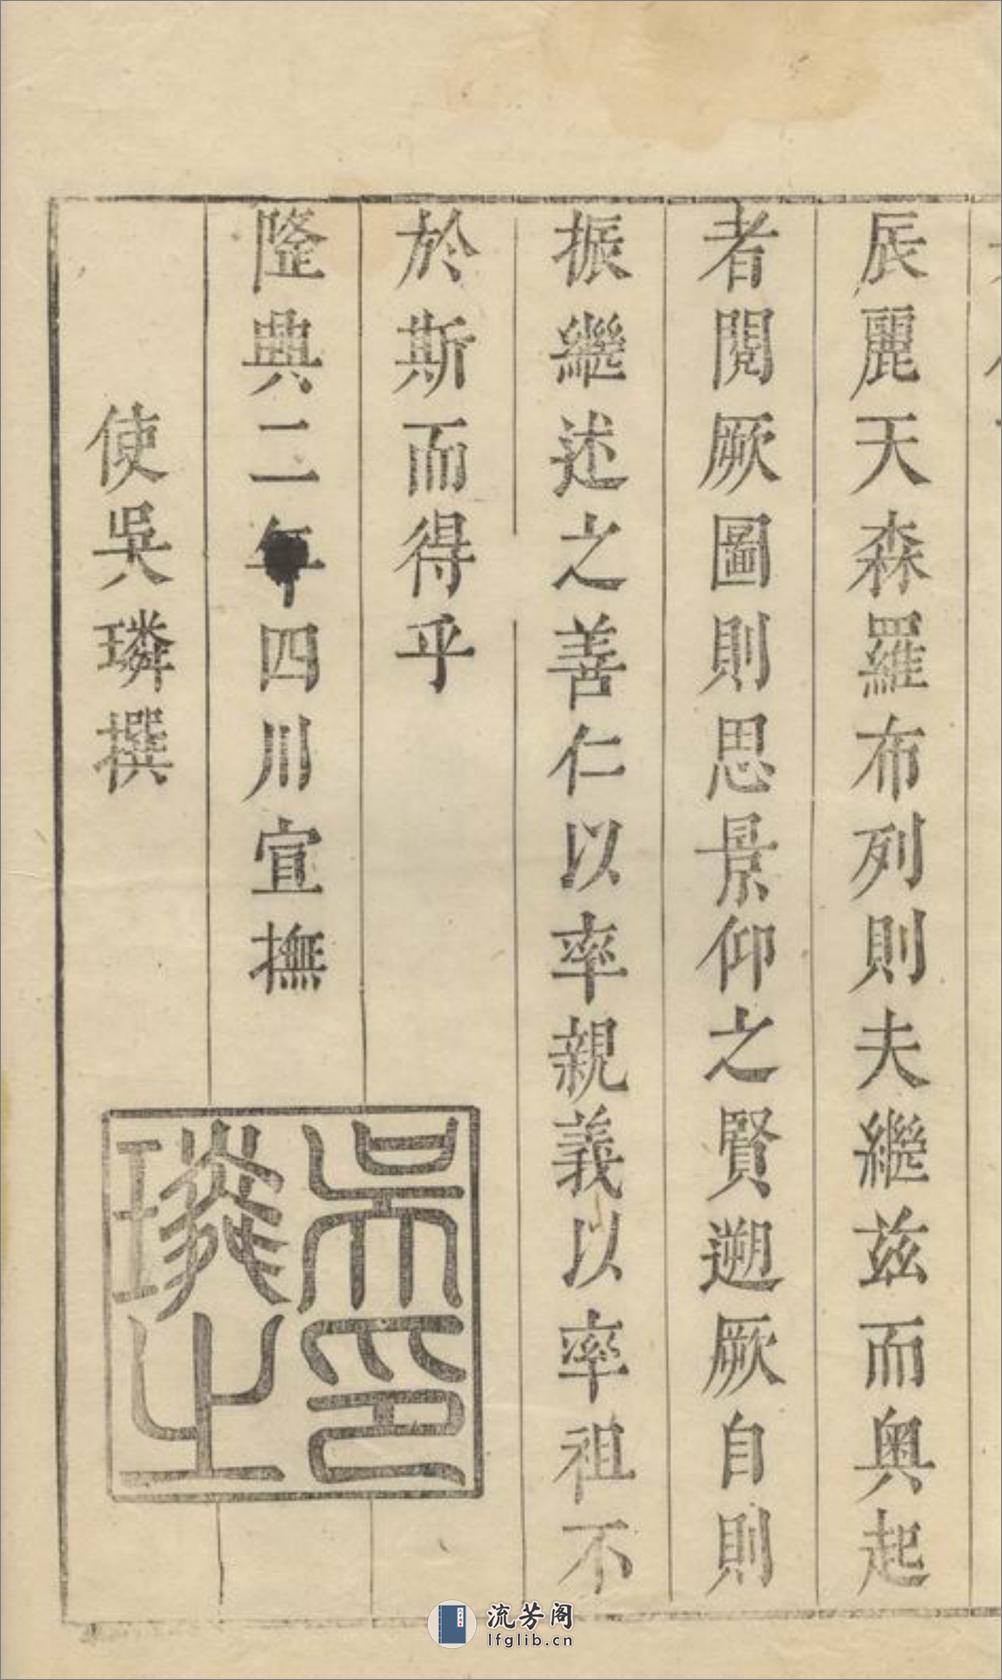 辰麗天森羅布列則夫繼茲而奥起
者閱厥圖則思景仰之賢遡厥自則
振繼述之善仁以率親義以率祖不
於斯而得乎
隆典二年四川宣撫
使吳璘撰
吳璘之印
流芳阁
lfglib.cn